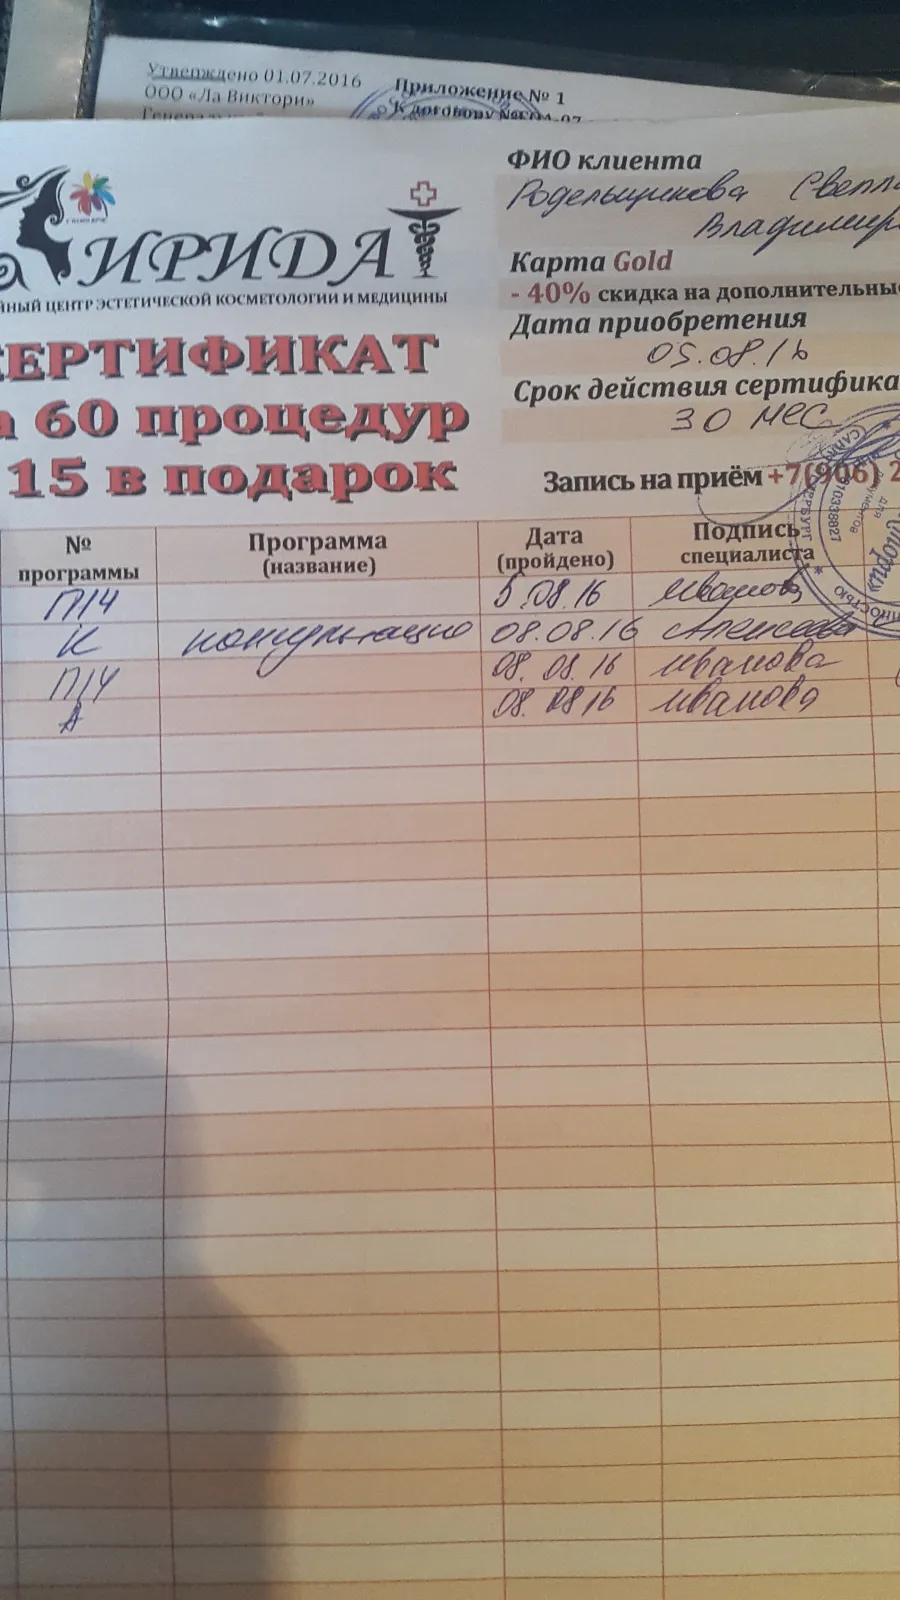 Утверждено 01.07.2016
ООО «Ла Виктори»
Приложение № 1
К договору
ИРИДА
ЙНЫЙ ЦЕНТР ЭСТЕТИЧЕСКОЙ КОСМЕТОЛОГИИ И МЕДИЦИНЫ
ЕРТИФИКАТ
а 60 процедур
15 в подарок
ФИО клиента
Родельщикова Светла
Владимир
Карта Gold
- 40% скидка на дополнительные
Дата приобретения
05.08.16
Срок действия сертифика
30 мес
Запись на приём +7(906) 2
№ программы Программа (название) Дата (пройдено) Подпись специалиста
П14 5.08.16 Иванова
К консультацию 08.08.16 Алексеева
П14 08.08.16 Иванова
А 08.08.16 Иванова